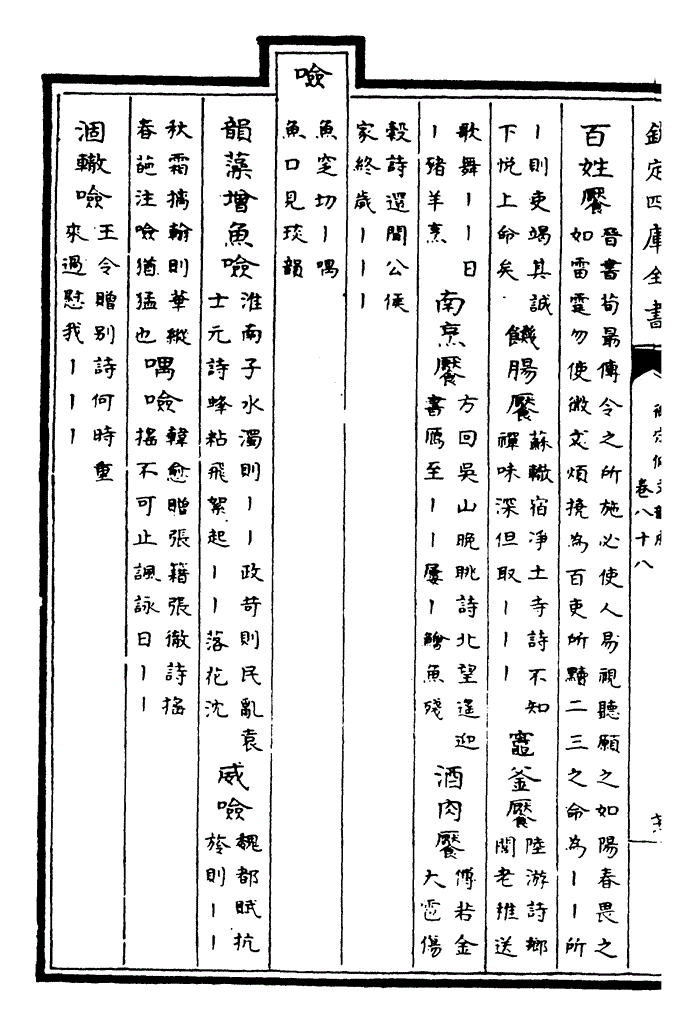 欽定四庫全書
卷八十八
百姓饜
晉書荀最傳令之所施必使人易視聽願之如陽春畏之
如雷霆勿使微文煩撓為百吏所黷二三之命為丨丨所
丨則吏竭其誠
下悅上命矣
饑腸饜
蘇轍宿凈土寺詩不知
禪味深但取丨丨丨
竈釜饜
陸游詩鄉
閭老推送
歌舞丨丨日
丨豬羊烹
南烹饜
方回吳山晚眺詩北望遥迎
書鴈至丨丨屢丨鱠魚殘
酒肉饜
傅若金
大雹傷
穀詩還聞公侯
家終歲丨丨丨
噞
魚窆切丨喁
魚口見琰韻
韻藻增魚噞
淮南子水濁則丨丨政苛則民亂袁
士元詩蜂粘飛絮起丨丨落花沈
威噞
魏都賦抗
旍則丨丨
秋霜摛翰則華縱
春葩注噞猶猛也
喁噞
韓愈贈張籍張徹詩搖
搖不可止諷詠日丨丨
涸轍噞
王令贈别詩何時重
來過慰我丨丨丨